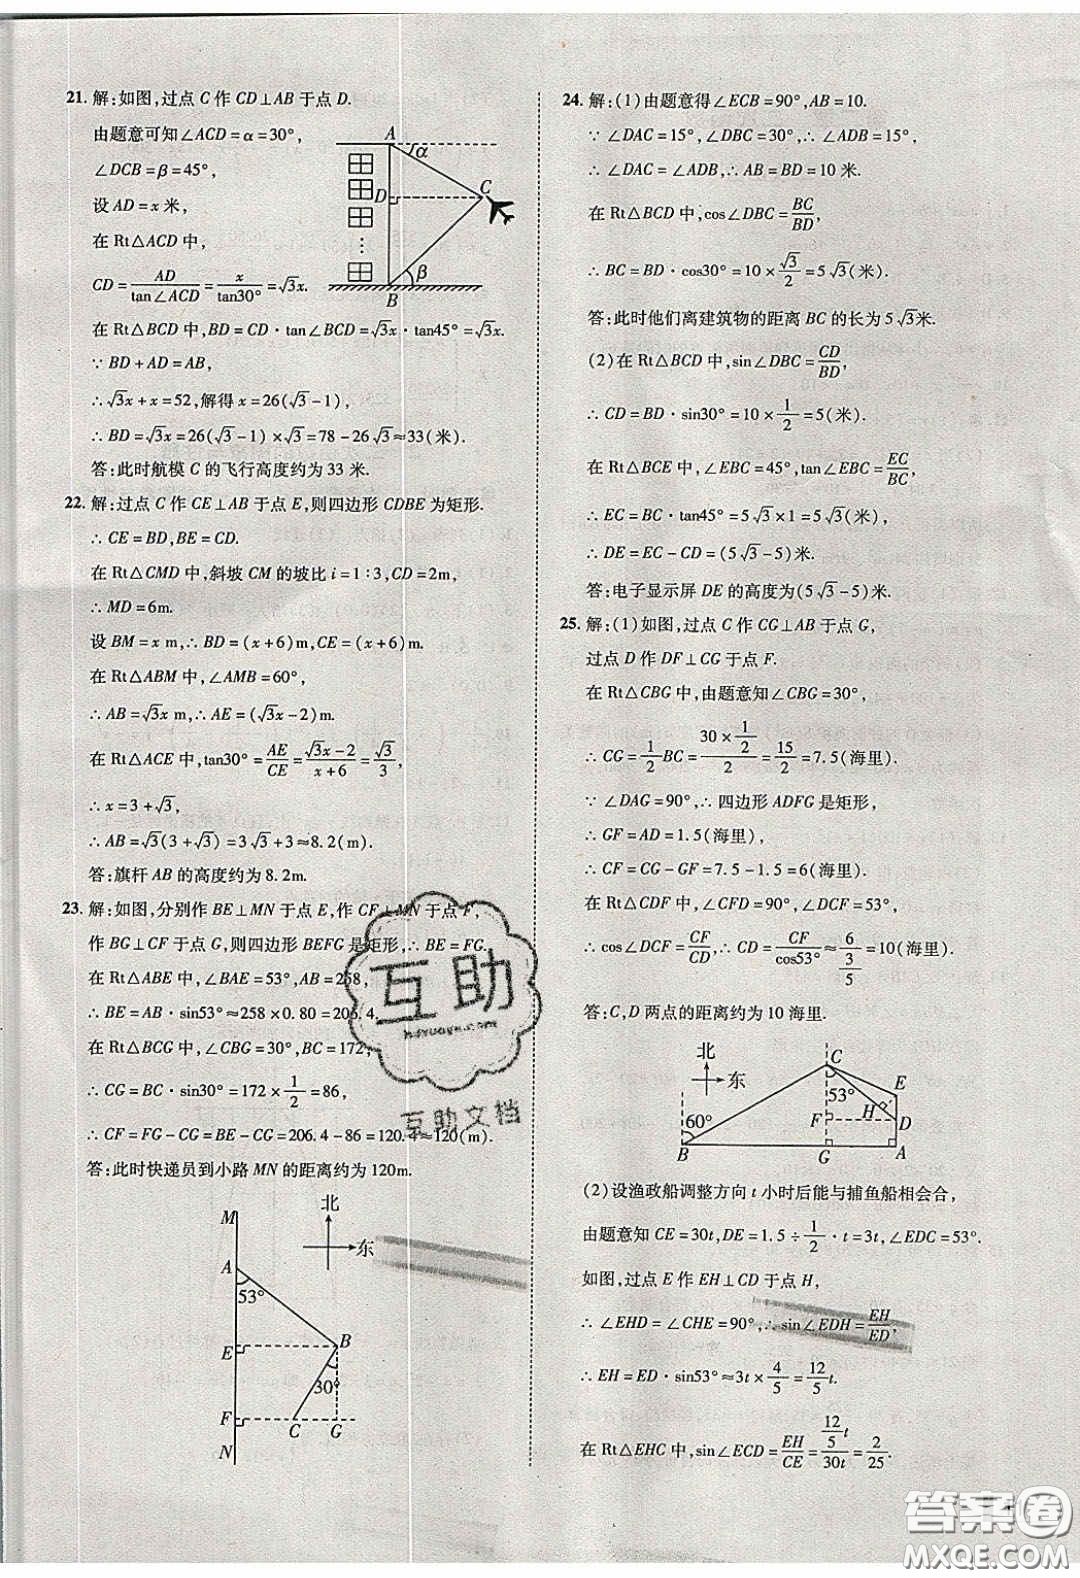 21. 解:如图,过点 C 作 CD⊥AB 于点 D.
由题意可知∠ACD=α=30°,
∠DCB=β=45°,
设 AD=x 米,
在 Rt△ACD 中,
CD=AD/tan∠ACD=x/tan30°=√3x.
在 Rt△BCD 中,BD=CD·tan∠BCD=√3x·tan45°=√3x.
∵BD+AD=AB,
∴√3x+x=52,解得 x=26(√3-1),
∴BD=√3x=26(√3-1)×√3=78-26√3≈33(米).
答:此时航模 C 的飞行高度约为 33 米.
A
α
D
C
β
B
22. 解:过点 C 作 CE⊥AB 于点 E,则四边形 CDBE 为矩形.
∴CE=BD,BE=CD.
在 Rt△CMD 中,斜坡 CM 的坡比 i=1:3,CD=2m,
∴MD=6m.
设 BM=x m,∴BD=(x+6)m,CE=(x+6)m.
在 Rt△ABM 中,∠AMB=60°,
∴AB=√3x m,∴AE=(√3x-2)m.
在 Rt△ACE 中,tan30°=AE/CE=(√3x-2)/(x+6)=√3/3,
∴x=3+√3,
∴AB=√3(3+√3)=3√3+3≈8.2(m).
答:旗杆 AB 的高度约为 8.2m.
23. 解:如图,分别作 BE⊥MN 于点 E,作 CF⊥MN 于点 F,
作 BG⊥CF 于点 G,则四边形 BEFG 是矩形,∴BE=FG.
在 Rt△ABE 中,∠BAE=53°,AB=258,
∴BE=AB·sin53°≈258×0.80=206.4.
在 Rt△BCG 中,∠CBG=30°,BC=172,
∴CG=BC·sin30°=172×1/2=86,
∴CF=FG-CG=BE-CG=206.4-86=120.4≈120(m).
答:此时快递员到小路 MN 的距离约为 120m.
M
北
东
A
53°
E
B
30°
F
C
G
N
24. 解:(1)由题意得∠ECB=90°,AB=10.
∵∠DAC=15°,∠DBC=30°,∴∠ADB=15°,
∴∠DAC=∠ADB,∴AB=BD=10 米,
在 Rt△BCD 中,cos∠DBC=BC/BD,
∴BC=BD·cos30°=10×√3/2=5√3(米).
答:此时他们离建筑物的距离 BC 的长为 5√3米.
(2)在 Rt△BCD 中,sin∠DBC=CD/BD,
∴CD=BD·sin30°=10×1/2=5(米).
在 Rt△BCE 中,∠EBC=45°,tan∠EBC=EC/BC,
∴EC=BC·tan45°=5√3×1=5√3(米),
∴DE=EC-CD=(5√3-5)米.
答:电子显示屏 DE 的高度为(5√3-5)米.
25. 解:(1)如图,过点 C 作 CG⊥AB 于点 G,
过点 D 作 DF⊥CG 于点 F.
在 Rt△CBG 中,由题意知∠CBG=30°,
∴CG=1/2BC=(30×1/2)/2=15/2=7.5(海里).
∵∠DAG=90°,∴四边形 ADFG 是矩形,
∴GF=AD=1.5(海里),
∴CF=CG-GF=7.5-1.5=6(海里).
在 Rt△CDF 中,∠CFD=90°,∠DCF=53°,
∴cos∠DCF=CF/CD,∴CD=CF/cos53°≈6/(3/5)=10(海里).
答:C,D 两点的距离约为 10 海里.
北
东
C
53°
E
H
F
D
60°
B
G
A
(2)设渔政船调整方向 t 小时后能与捕鱼船相会合,
由题意知 CE=30t,DE=1.5÷1/2·t=3t,∠EDC=53°.
如图,过点 E 作 EH⊥CD 于点 H,
∴∠EHD=∠CHE=90°,∴sin∠EDH=EH/ED,
∴EH=ED·sin53°≈3t×4/5=12/5t.
在 Rt△EHC 中,sin∠ECD=EH/CE=(12/5t)/30t=2/25.
互助
互助文档
答案圈
MXQE.COM